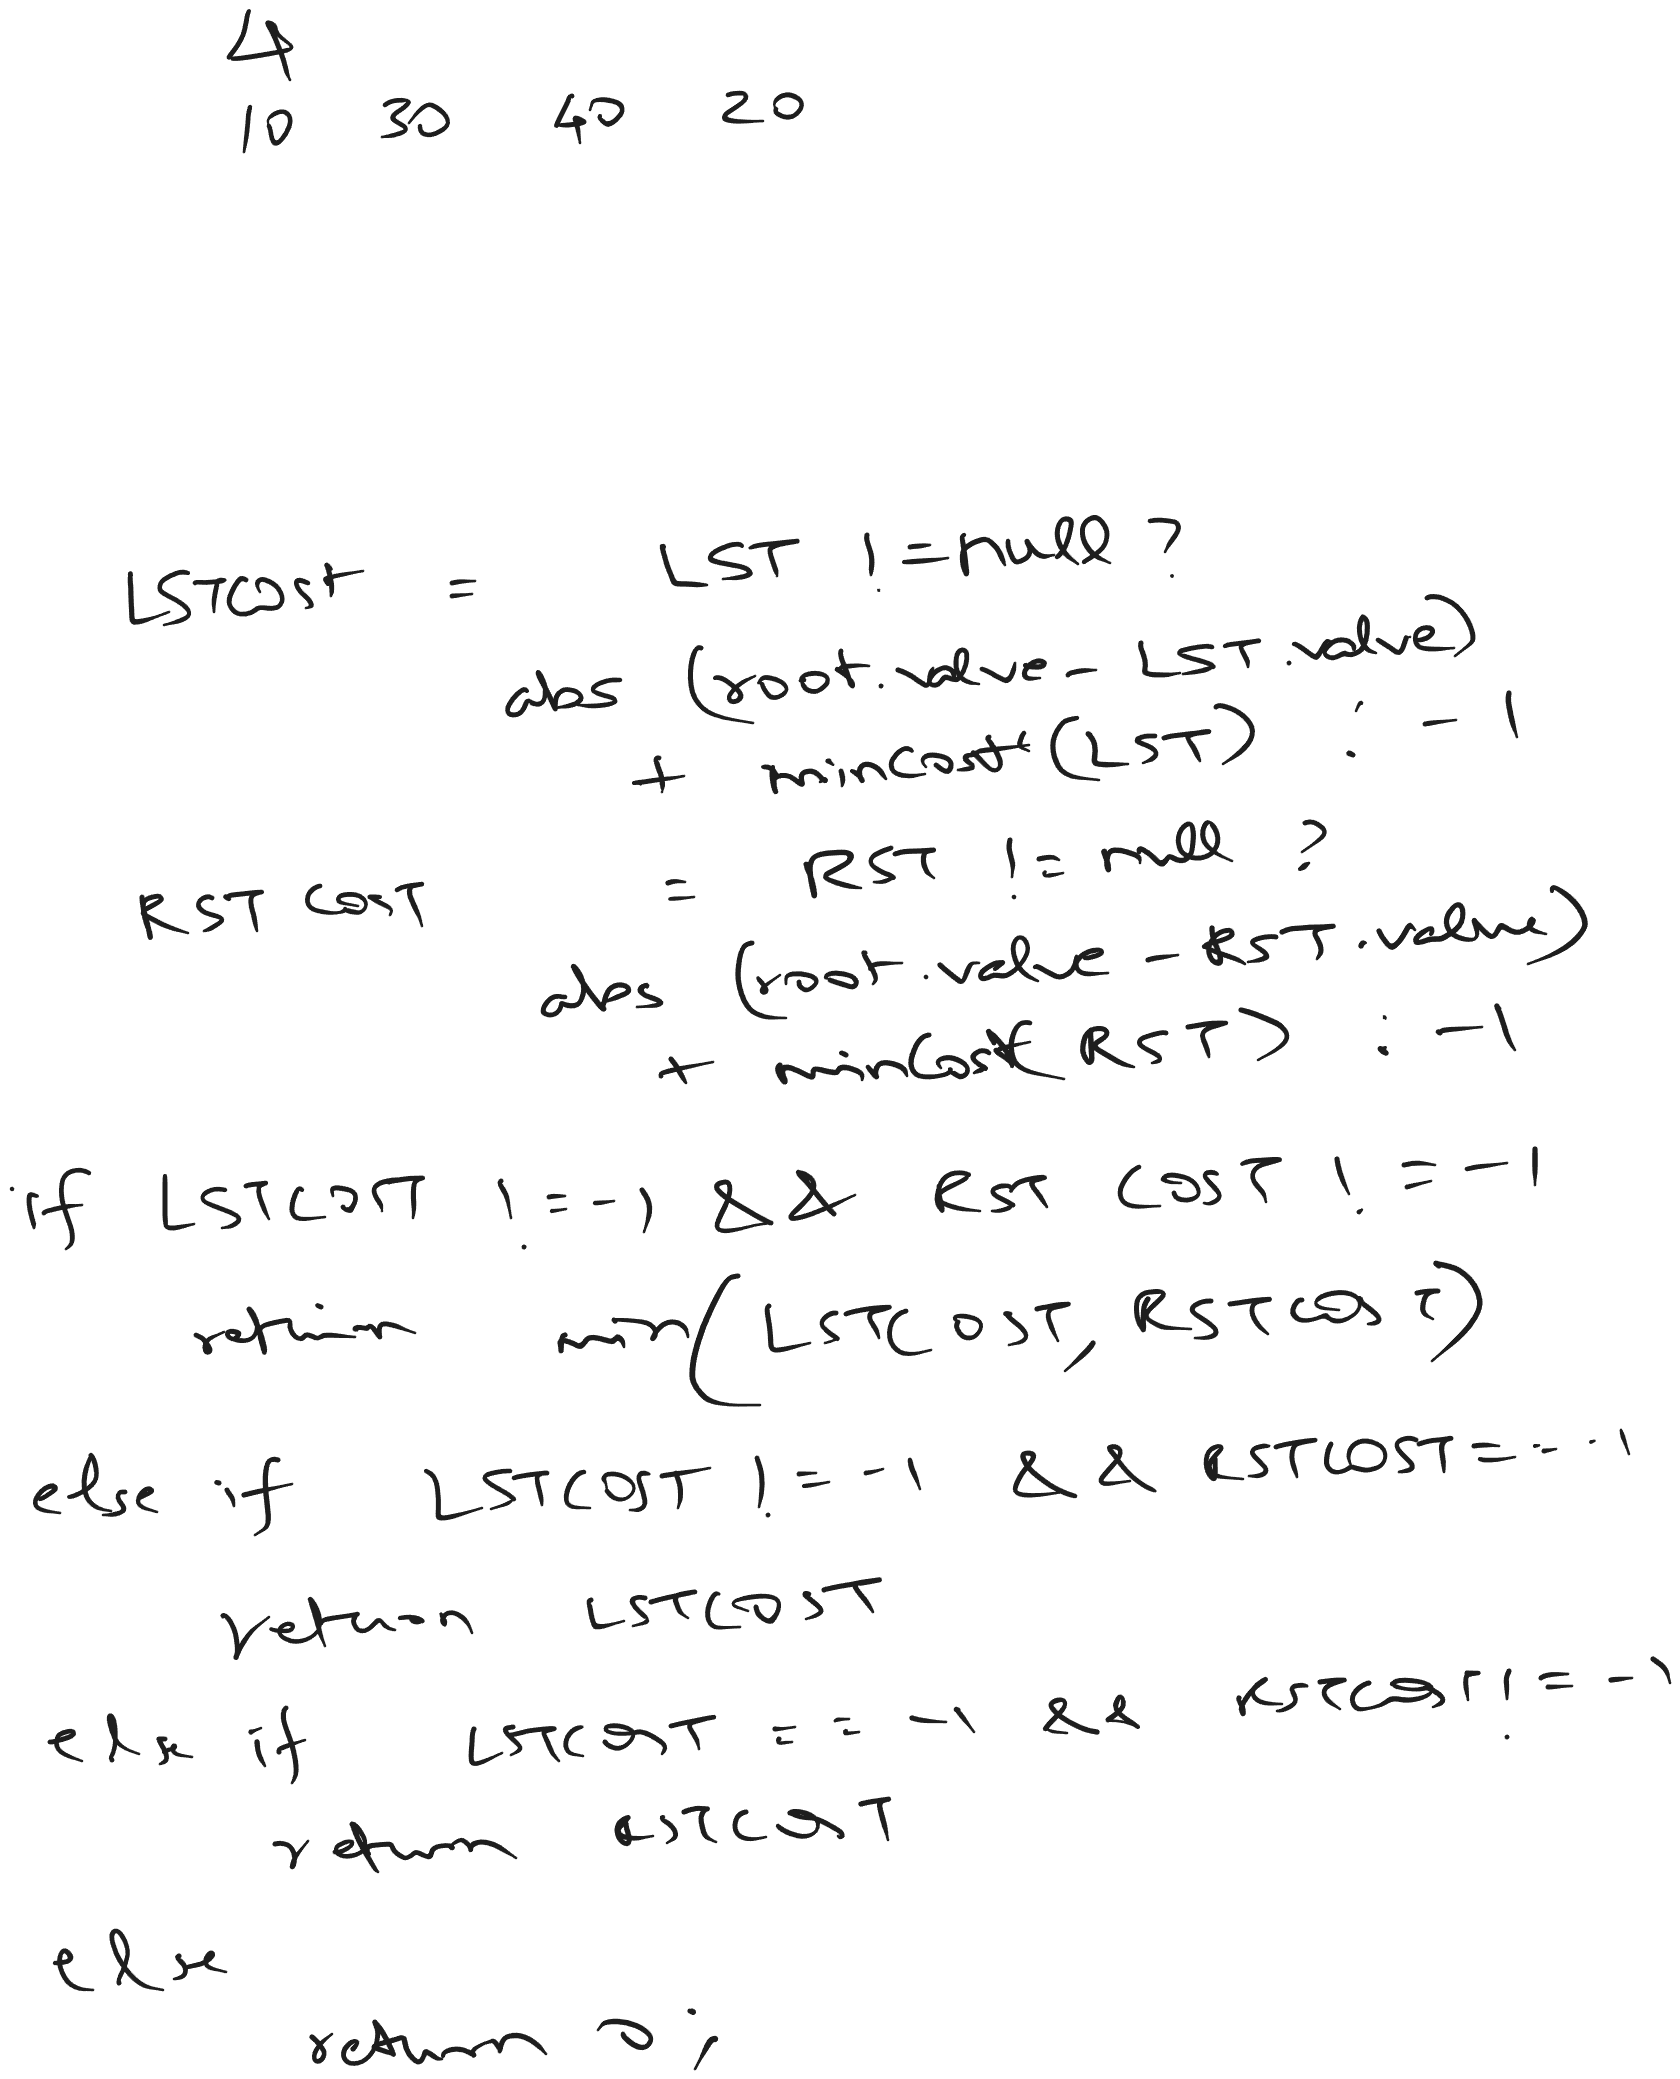 4
10 30 40 20
LSTCOst = LST != null ?
abs (root.value - LST.value)
+ minCost (LST) : -1
RST COST = RST != null ?
abs (root.value - RST.value)
+ minCost( RST) : -1
if LSTCOST != -1 && RST COST != -1
return min(LSTCOST, RSTCOST)
else if LSTCOST != -1 && RSTCOST == -1
return LSTCOST
else if LSTCOST == -1 && RSTCOST != -1
return RSTCOST
else
return 0;